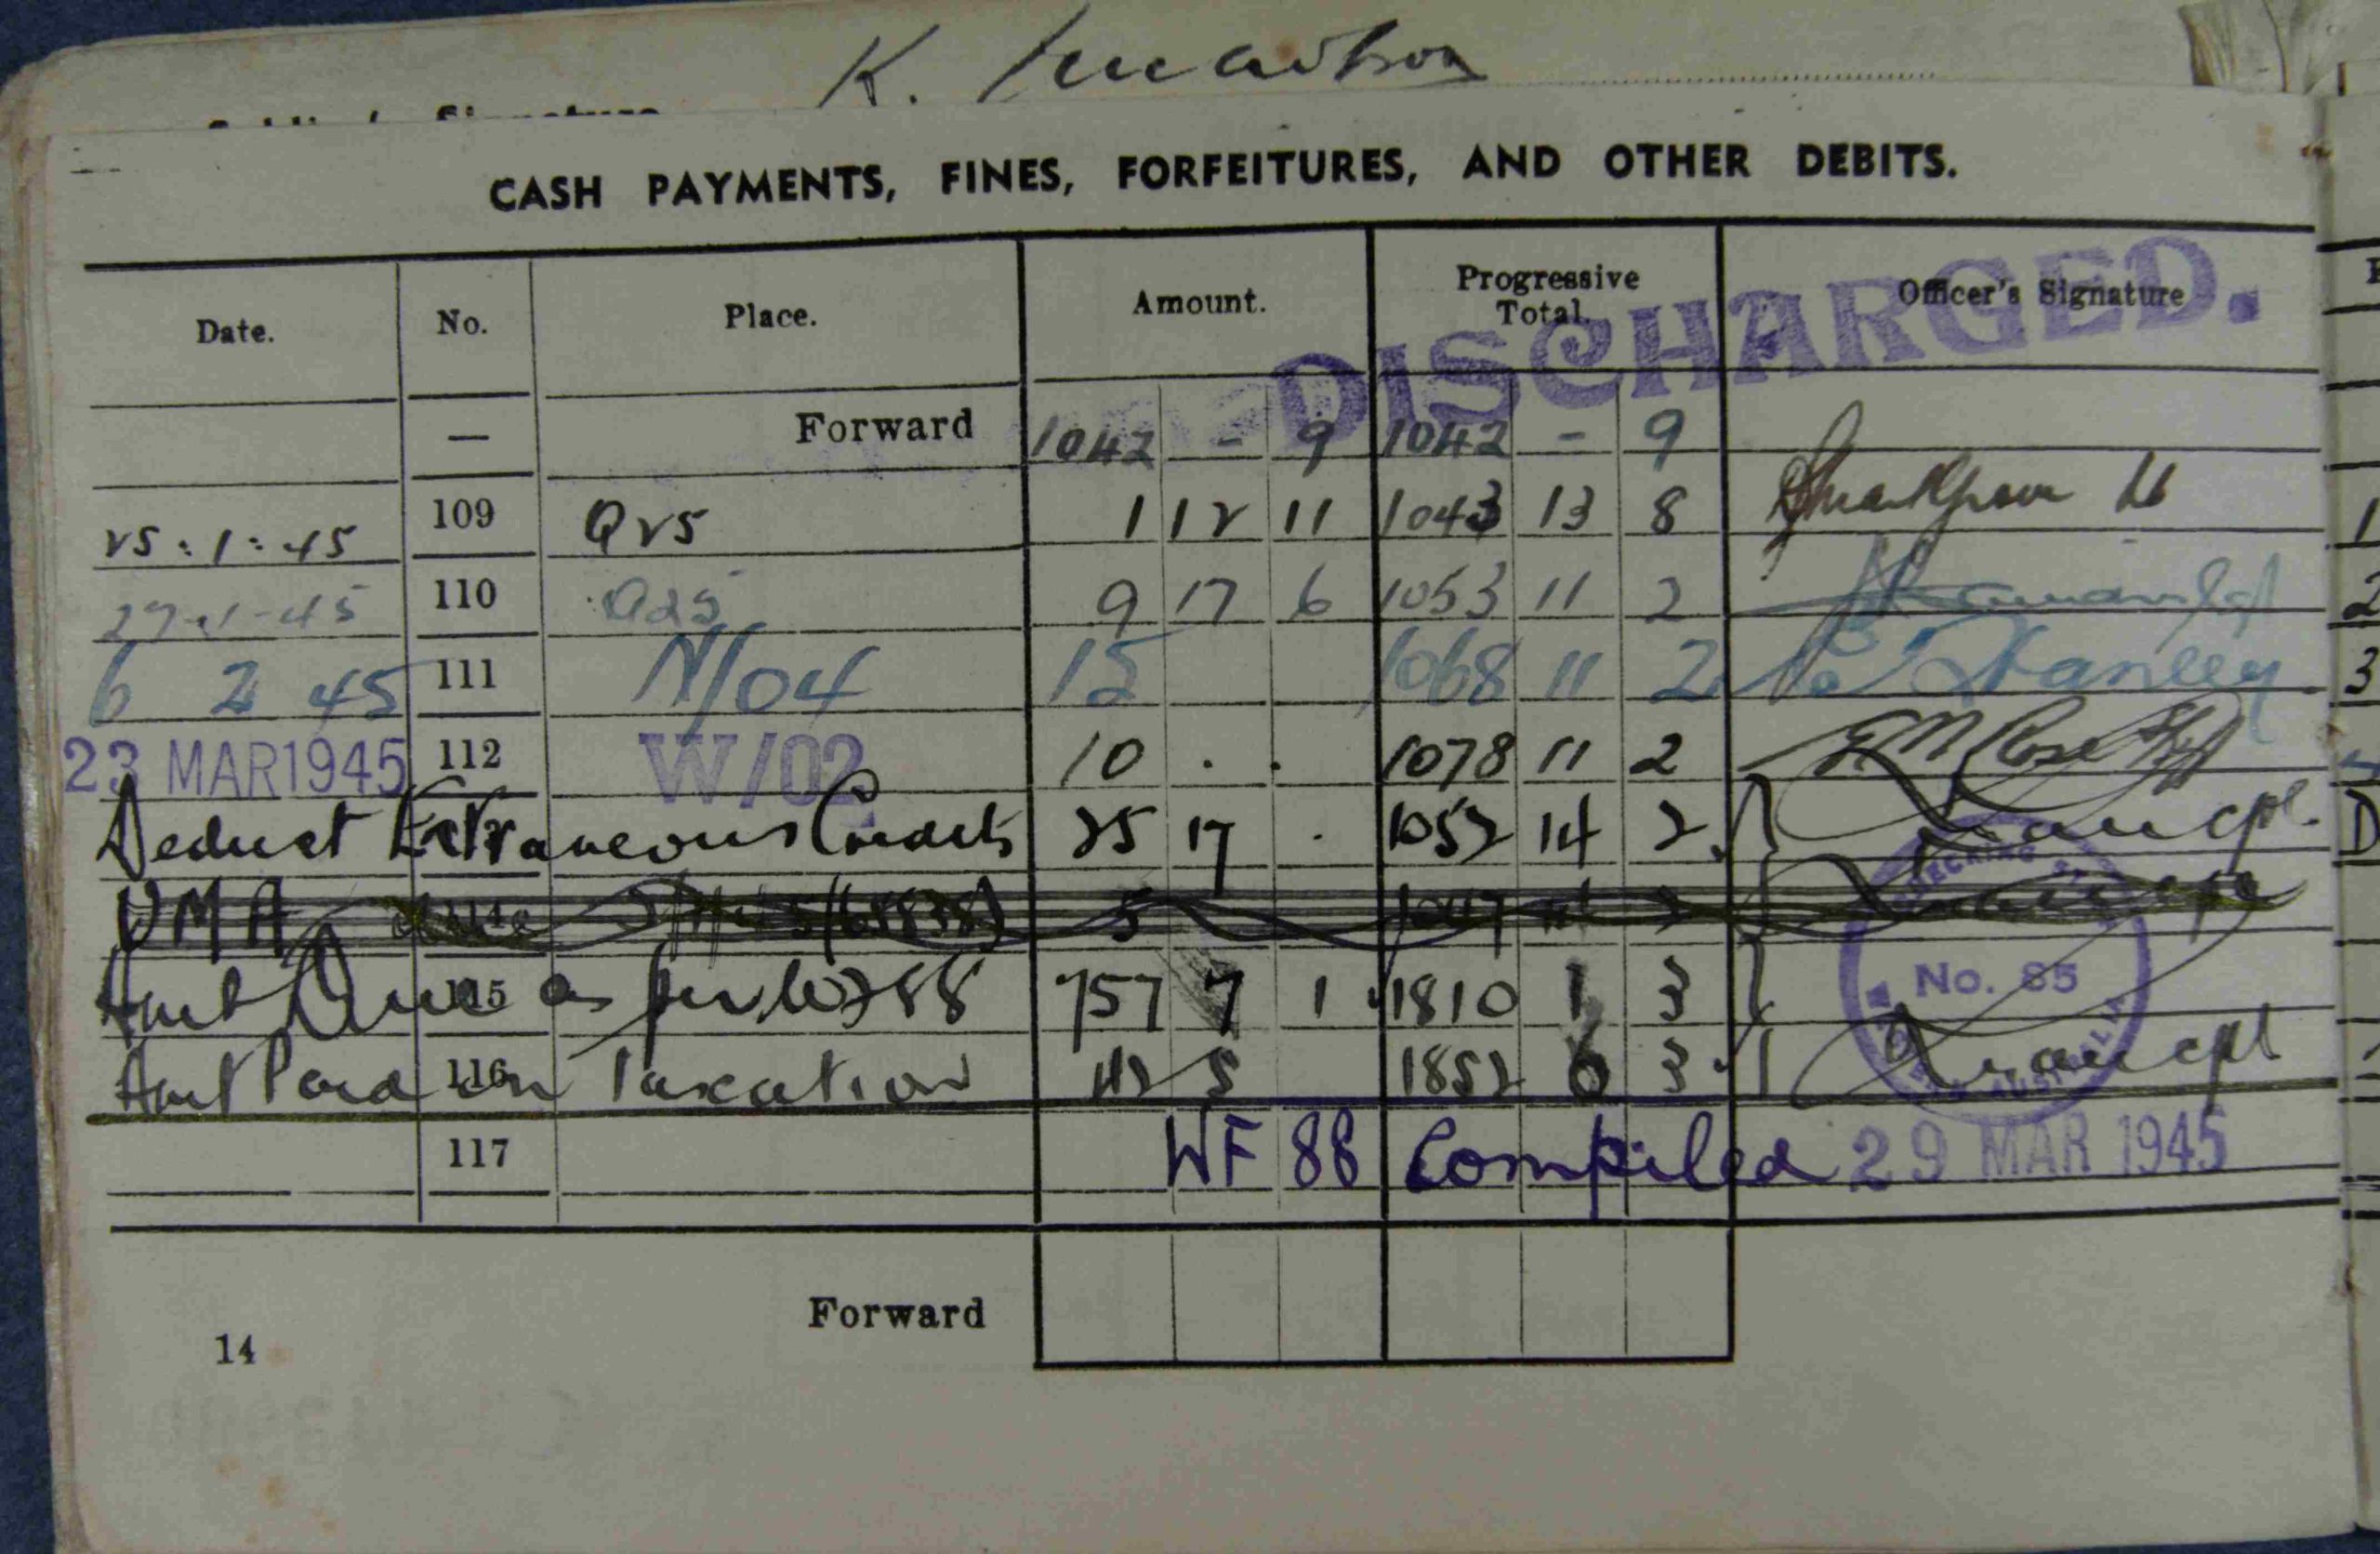 K.
CASH PAYMENTS, FINES, FORFEITURES, AND OTHER DEBITS.
Date. No. Place. Amount. Progressive Total. Officer's Signature
DISCHARGED.
— Forward 1042 - 9 1042 - 9
25:1:45 109 Q25 1 12 11 1043 13 8
27-1-45 110 Q25 9 17 6 1053 11 2
6 2 45 111 N/04 15 1068 11 2 Stanley
23 MAR 1945 112 W/02 10 . . 1078 11 2 E M Rose
Deduct Extraneous Credits 25 17 . 1052 14 2 cpl.
DMA 114 5 1047 14 2
Amt Due 115 as per 88 757 7 1 1810 1 3
No. 85
Amt Paid 116 on Taxation 42 5 1852 6 3 cpl
117 WF 88 Compiled 29 MAR 1945
Forward
14